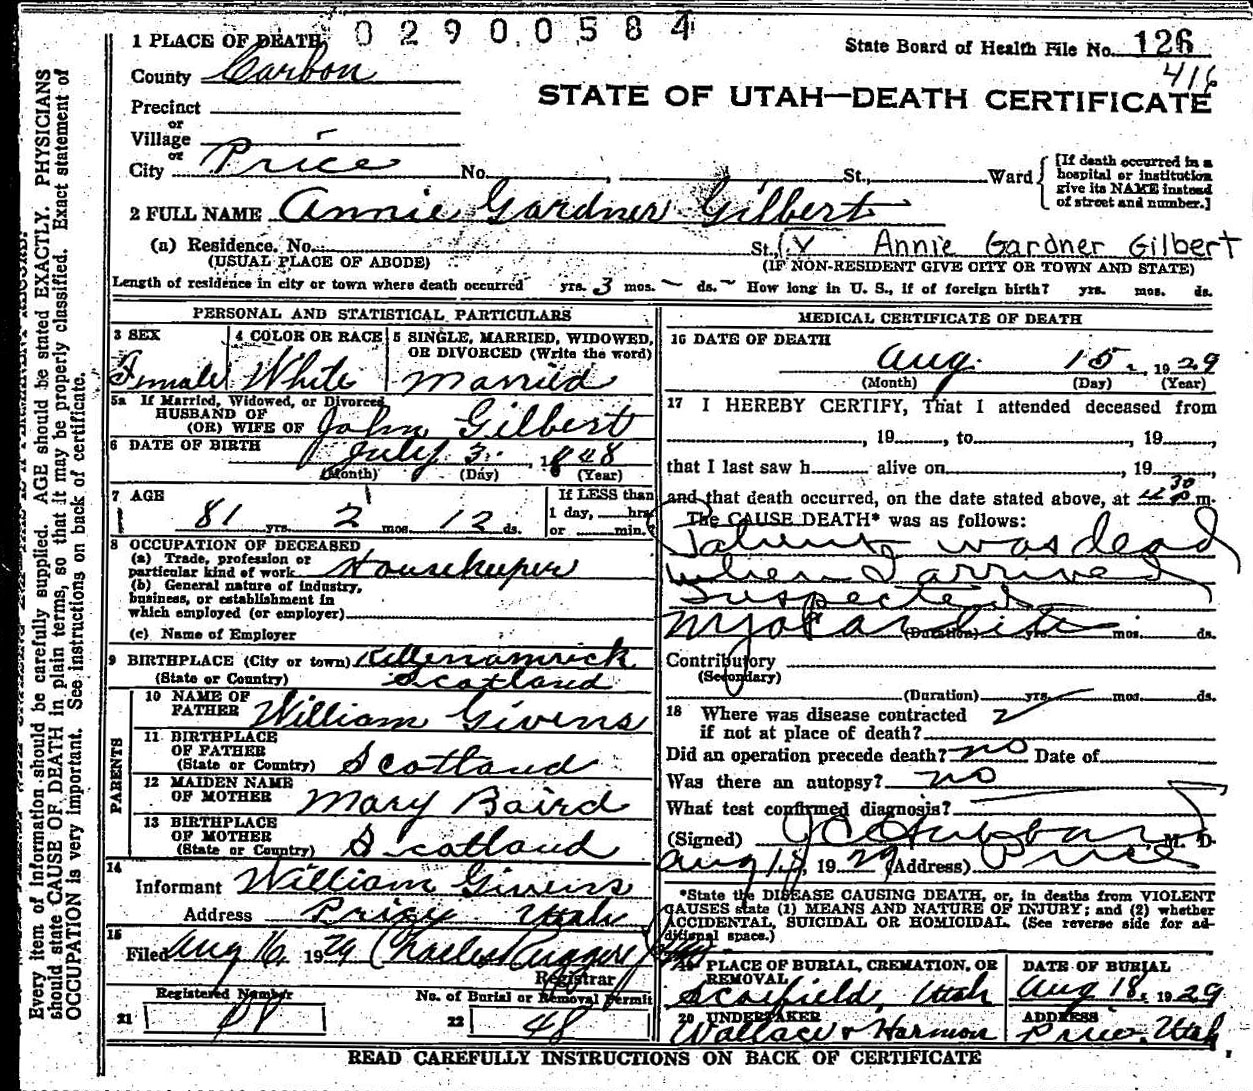 02900584
1 PLACE OF DEATH
State Board of Health File No. 126
416
County Carbon
STATE OF UTAH—DEATH CERTIFICATE
Precinct
or
Village
or
City Price No. , St., Ward
[If death occurred in a hospital or institution give its NAME instead of street and number.]
2 FULL NAME Annie Gardner Gilbert
(a) Residence. No. St., Annie Gardner Gilbert
(USUAL PLACE OF ABODE) (IF NON-RESIDENT GIVE CITY OR TOWN AND STATE)
Length of residence in city or town where death occurred yrs. 3 mos. — ds. — How long in U. S., if of foreign birth? yrs. mos. ds.
PERSONAL AND STATISTICAL PARTICULARS
3 SEX
Female
4 COLOR OR RACE
White
5 SINGLE, MARRIED, WIDOWED, OR DIVORCED (Write the word)
Married
5a If Married, Widowed, or Divorced
HUSBAND OF
(OR) WIFE OF John Gilbert
6 DATE OF BIRTH July 3, 1848
(Month) (Day) (Year)
7 AGE
81 yrs. 2 mos. 12 ds.
If LESS than
1 day, hrs
or min.?
8 OCCUPATION OF DECEASED
(a) Trade, profession or
particular kind of work Housekeeper
(b) General nature of industry,
business, or establishment in
which employed (or employer)
(c) Name of Employer
9 BIRTHPLACE (City or town)
(State or Country) Scotland
PARENTS
10 NAME OF FATHER William Givens
11 BIRTHPLACE OF FATHER
(State or Country) Scotland
12 MAIDEN NAME OF MOTHER Mary Baird
13 BIRTHPLACE OF MOTHER
(State or Country) Scotland
14
Informant William Givens
Address Price Utah
15
Filed Aug 16, 1929
Registrar
Registered Number
21
No. of Burial or Removal Permit
22 48
MEDICAL CERTIFICATE OF DEATH
16 DATE OF DEATH
Aug. 15, 1929
(Month) (Day) (Year)
17 I HEREBY CERTIFY, That I attended deceased from
, 19 , to , 19 ,
that I last saw h alive on , 19 ,
and that death occurred, on the date stated above, at m.
The CAUSE DEATH* was as follows:
Patient was dead
when I arrived
Suspected
Myocarditis
(Duration) yrs. mos. ds.
Contributory
(Secondary)
(Duration) yrs. mos. ds.
18 Where was disease contracted
if not at place of death?
Did an operation precede death? no Date of
Was there an autopsy? no
What test confirmed diagnosis?
(Signed) Hubbard M. D.
Aug 15, 1929 (Address) Price
*State the DISEASE CAUSING DEATH, or, in deaths from VIOLENT
CAUSES state (1) MEANS AND NATURE OF INJURY; and (2) whether
ACCIDENTAL, SUICIDAL OR HOMICIDAL. (See reverse side for ad-
ditional space.)
PLACE OF BURIAL, CREMATION, OR
REMOVAL
Scofield, Utah
DATE OF BURIAL
Aug 18, 1929
20 UNDERTAKER
Wallace & Harmon
ADDRESS
Price, Utah
READ CAREFULLY INSTRUCTIONS ON BACK OF CERTIFICATE
Every item of information should be carefully supplied. AGE should be stated EXACTLY. PHYSICIANS
should state CAUSE OF DEATH in plain terms, so that it may be properly classified. Exact statement of
OCCUPATION is very important. See instructions on back of certificate.